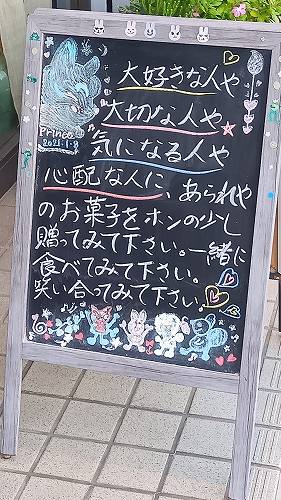 大好きな人や
大切な人や
気になる人や
Prince
2021.1.8
心配な人に、あられや
のお菓子をホンの少し
贈ってみて下さい。一緒に
食べてみて下さい。
笑い合ってみて下さい。